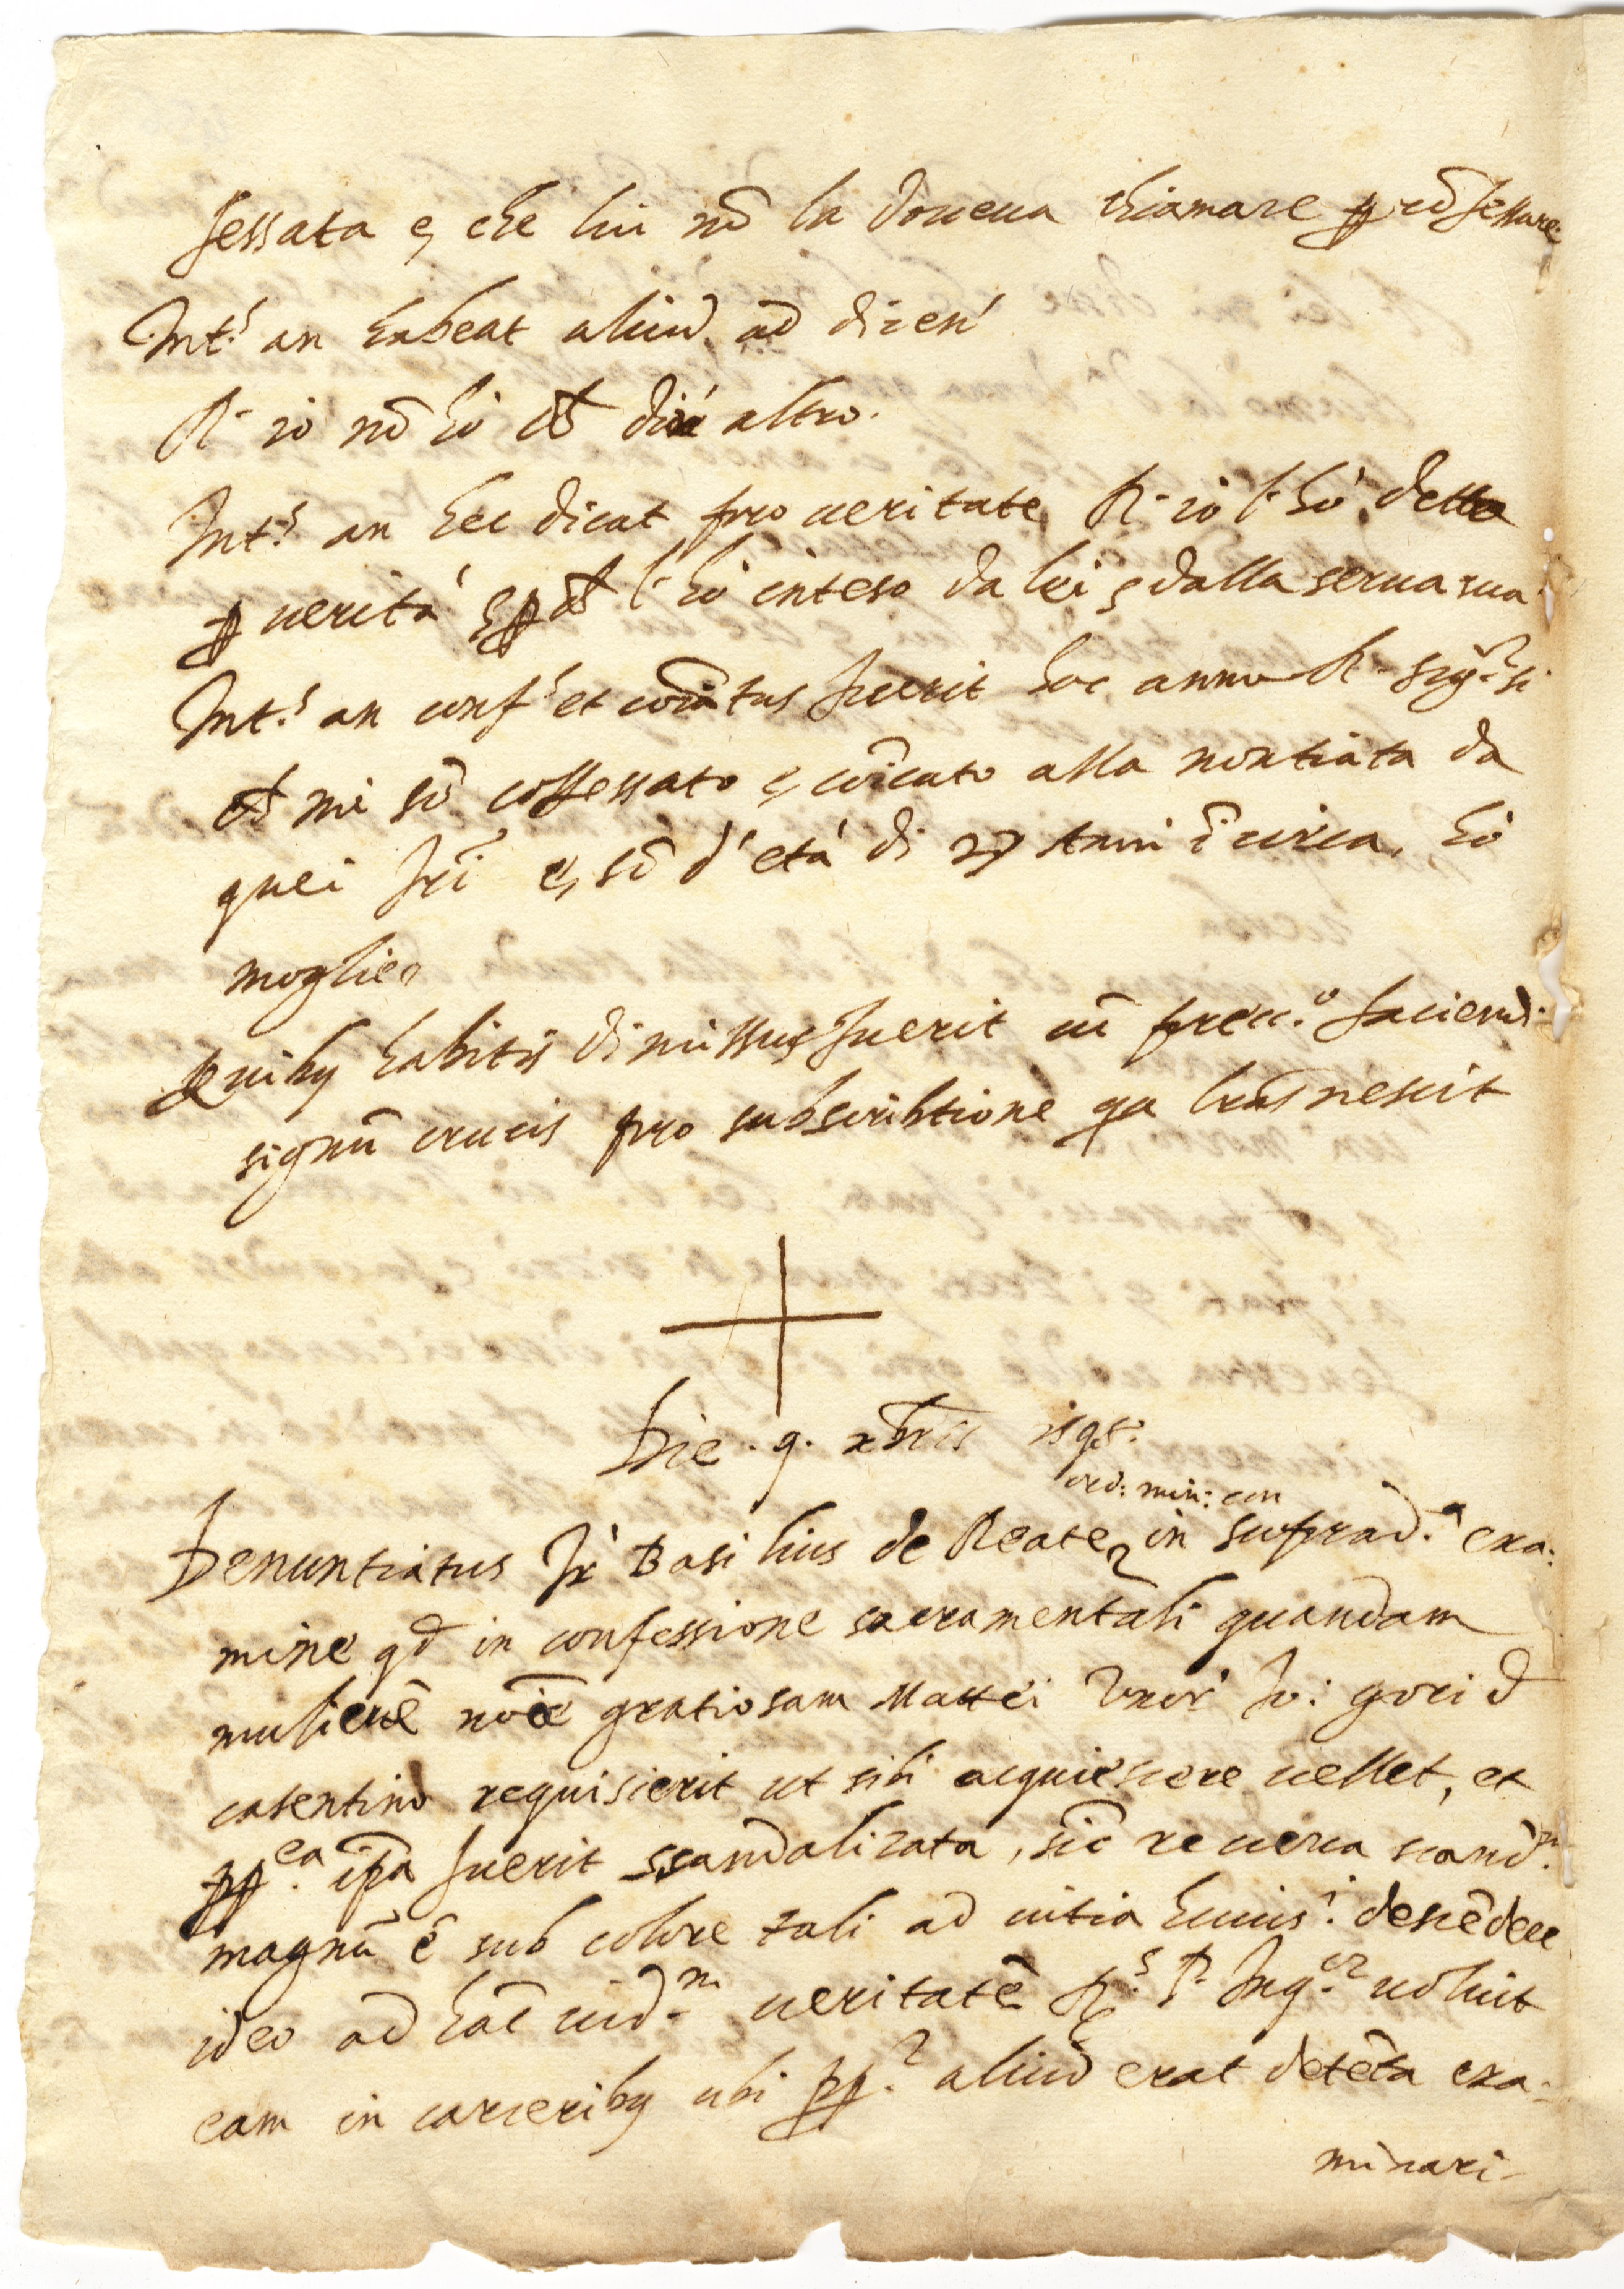 fessata e, che lui nō la doueua chiamare ꝑ cōfessare
Int.s an habeat aliud ad dicen'
R. io nō hò ch' dire altro.
Int.s an hec dicat pro ueritate R. io l'hò detto
ꝑ uerità e ꝑch' l'hò inteso da lei e dalla serua sua
Int.s an conf.s et coīatus fuerit hoc anno R. sig.r si
ch' mi sō cōfessato e, coīcato alla nontiata da
quei frī e, sō d'età di 27 Anni ī circa, hò
moglie.
Quibꝫ habitis dimissus fuerit cū prec.o faciend.
signū crucis pro subscribtione qa lrās nescit
Die . 9. xbris 1595.
ord: min: con
Denuntiatus fr Basilius de Reate in suprad.o exa:
mine qd in confessione sacramentali quandam
mulierē noīe gratiosam Mattei Uxor' Jo: gori d
casentino requisierit ut sibi acquiescere uellet, et
ꝑꝑ.ea ipā fuerit scandalizata, sic re uera scand.m
magnū ē sub colore tali ad uitia huius.i descēdere
ideo ad hāc uid.m ueritatē R.s P. Inq.or uoluit
eam in carceribꝫ ubi ꝑꝑ.r aliud erat detēta exa-
minari